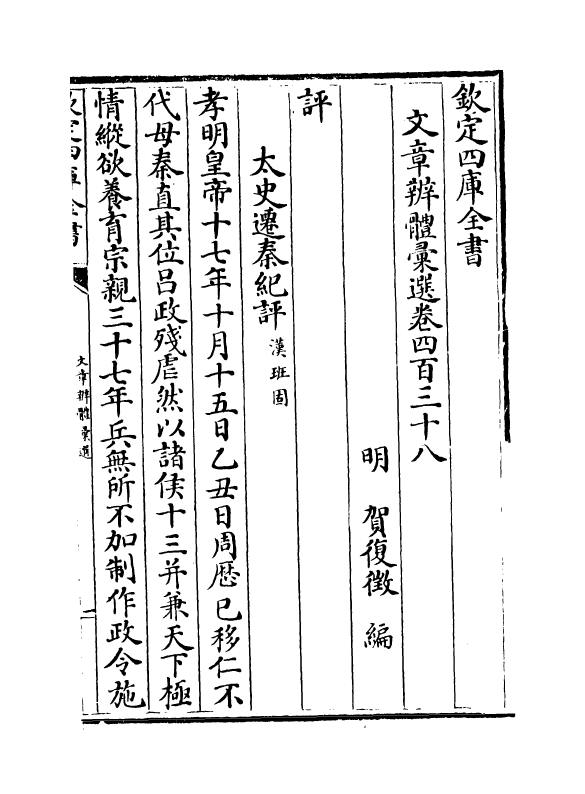 欽定四庫全書
文章辨體彚選卷四百三十八
明　賀復徵　編
評
太史遷秦紀評漢班固
孝明皇帝十七年十月十五日乙丑日周厯已移仁不
代母秦直其位吕政殘虐然以諸侯十三并兼天下極
情縱欲養育宗親三十七年兵無所不加制作政令施
欽定四庫全書
文章辨體彚選